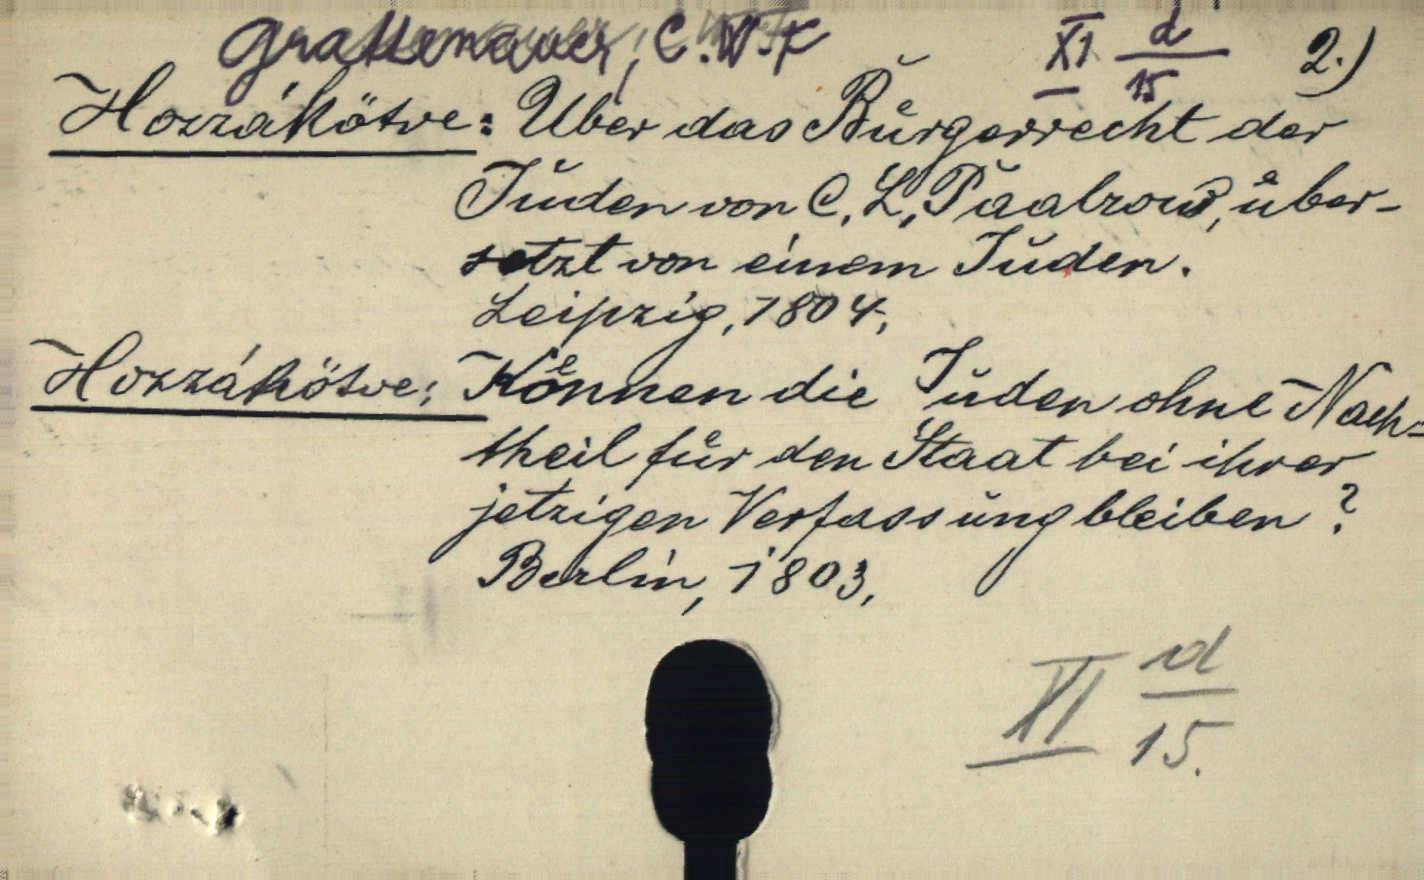 Grattenauer, C. W. F XI d/15 2.)
Hozzákötve: Uber das Bůrgerrecht der
Juden von C. L. Paalzow, ůber-
setzt von einem Juden.
Leipzig, 1804,
Hozzákötve: Können die Juden ohne Nach-
theil für den Staat bei ihrer
jetzigen Verfassung bleiben?
Berlin, 1803,
XI d/15.